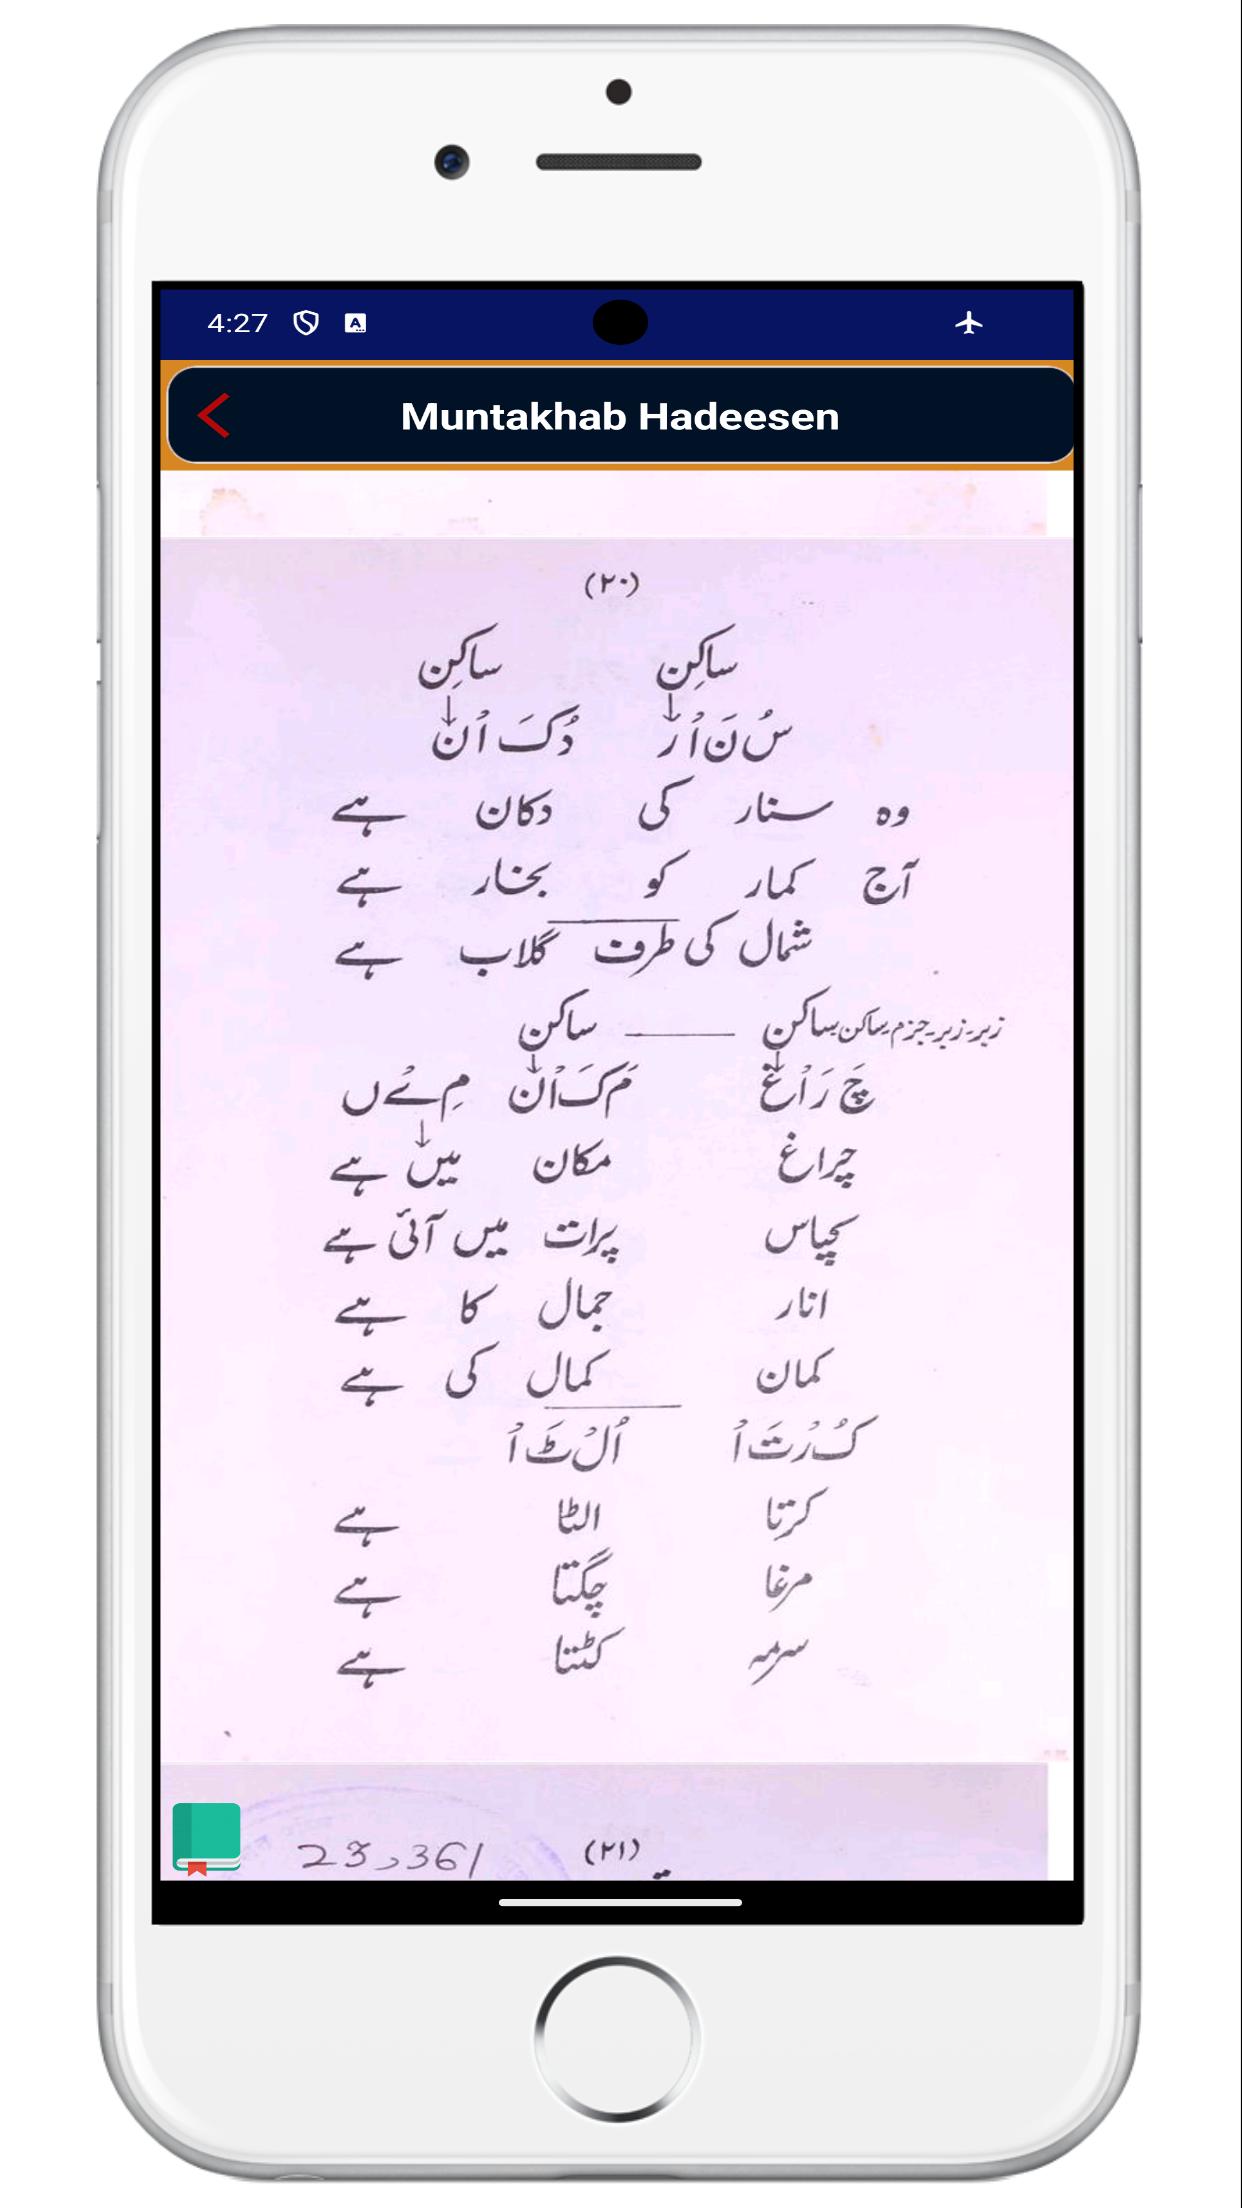 4:27
Muntakhab Hadeesen
(۲۰)
ساکِن ساکِن
سُ نَ اْ رْ دُ کَ اْ نْ
وہ سنار کی دکان ہے
آج کمار کو بخار ہے
شمال کی طرف گلاب ہے
زبر۔زبر۔جزم۔ساکن۔ساکن ساکن
چَ رَ اْ غْ مَ کَ اْ نْ مِ ےْ ں
چراغ مکان میں ہے
کپاس پرات میں آئی ہے
انار جمال کا ہے
کمان کمال کی ہے
کُ رْ تَ اْ اُ لْ ٹَ اْ
کرتا الٹا ہے
مرغا چگتا ہے
سرمہ کٹتا ہے
23,361 (۲۱)